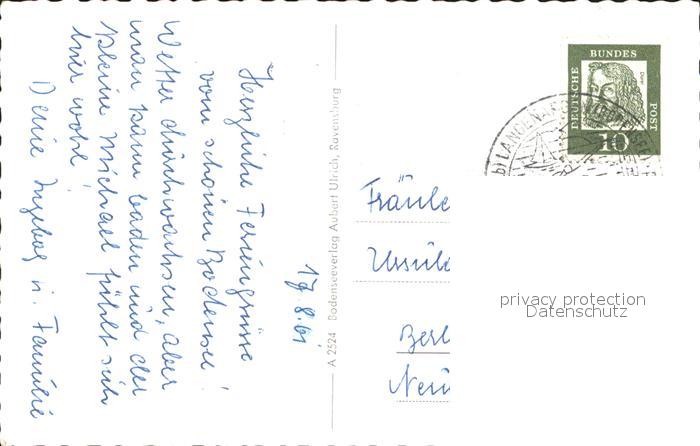 17.8.61
Herzliche Feriengrüsse
vom schönen Bodensee!
Wetter durchwachsen, aber
man kann baden und der
kleine Michael fühlt sich
hier wohl!
Deine Ingeborg u. Familie
A 2524 Bodenseeverlag Aubert Ulrich, Ravensburg
DEUTSCHE
BUNDES
POST
Dürer
10
LANGENAR
(BODENSEE)
Fräule
Ursula
Berl
Neu
privacy protection
Datenschutz